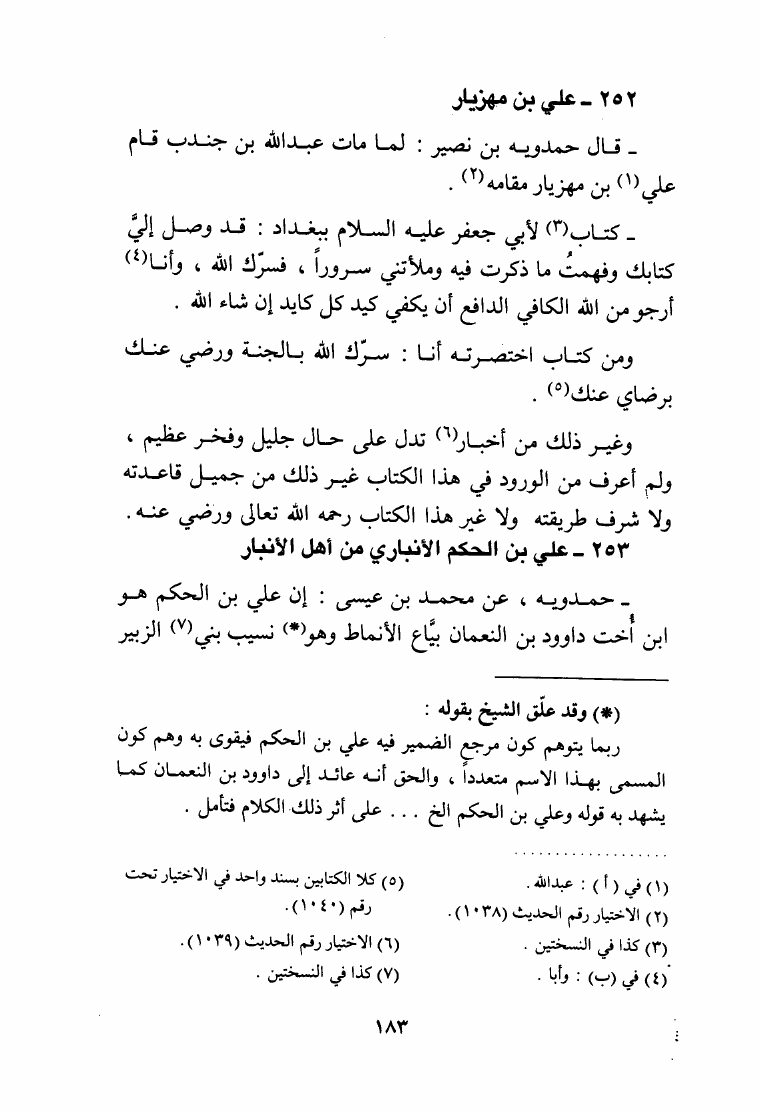 ٢٥٢ ـ علي بن مهزيار
ـ قال حمدويه بن نصير : لما مات عبدالله بن جندب قام
علي(١) بن مهزيار مقامه(٢) .
ـ كتاب(٣) لأبي جعفر عليه السلام ببغداد : قد وصل إليَّ
كتابك وفهمتُ ما ذكرت فيه وملأتني سروراً ، فسرّك الله ، وأنا(٤)
أرجو من الله الكافي الدافع أن يكفي كيد كل كايد إن شاء الله .
ومن كتاب اختصرته أنا : سرّك الله بالجنة ورضي عنك
برضاي عنك(٥) .
وغير ذلك من أخبار(٦) تدل على حال جليل وفخر عظيم ،
ولم أعرف من الورود في هذا الكتاب غير ذلك من جميل قاعدته
ولا شرف طريقته ولا غير هذا الكتاب رحمه الله تعالى ورضي عنه .
٢٥٣ ـ علي بن الحكم الأنباري من أهل الأنبار
ـ حمدويه ، عن محمد بن عيسى : إن علي بن الحكم هو
ابن أُخت داوود بن النعمان بيَّاع الأنماط وهو(*) نسيب بني(٧) الزبير
(*) وقد علّق الشيخ بقوله :
ربما يتوهم كون مرجع الضمير فيه علي بن الحكم فيقوى به وهم كون
المسمى بهذا الاسم متعدداً ، والحق أنه عائد إلى داوود بن النعمان كما
يشهد به قوله وعلي بن الحكم الخ . . . على أثر ذلك الكلام فتأمل .
(١) في ( أ ) : عبدالله .
(٢) الاختيار رقم الحديث (١٠٣٨) .
(٣) كذا في النسختين .
(٤) في (ب) : وأبا .
(٥) كلا الكتابين بسند واحد في الاختيار تحت
رقم (١٠٤٠) .
(٦) الاختيار رقم الحديث (١٠٣٩) .
(٧) كذا في النسختين .
١٨٣